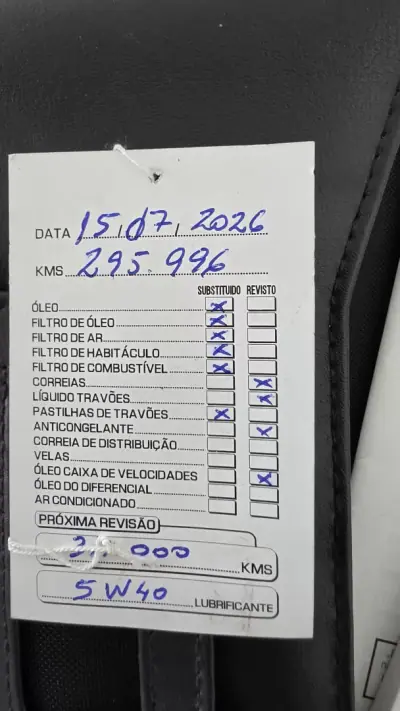 DATA 15/07/2026
KMS 295.996
SUBSTITUIDO REVISTO
ÓLEO X
FILTRO DE ÓLEO X
FILTRO DE AR X
FILTRO DE HABITÁCULO X
FILTRO DE COMBUSTÍVEL X
CORREIAS X
LÍQUIDO TRAVÕES X
PASTILHAS DE TRAVÕES X
ANTICONGELANTE X
CORREIA DE DISTRIBUIÇÃO
VELAS
ÓLEO CAIXA DE VELOCIDADES X
ÓLEO DO DIFERENCIAL
AR CONDICIONADO
PRÓXIMA REVISÃO
000 KMS
5W40 LUBRIFICANTE